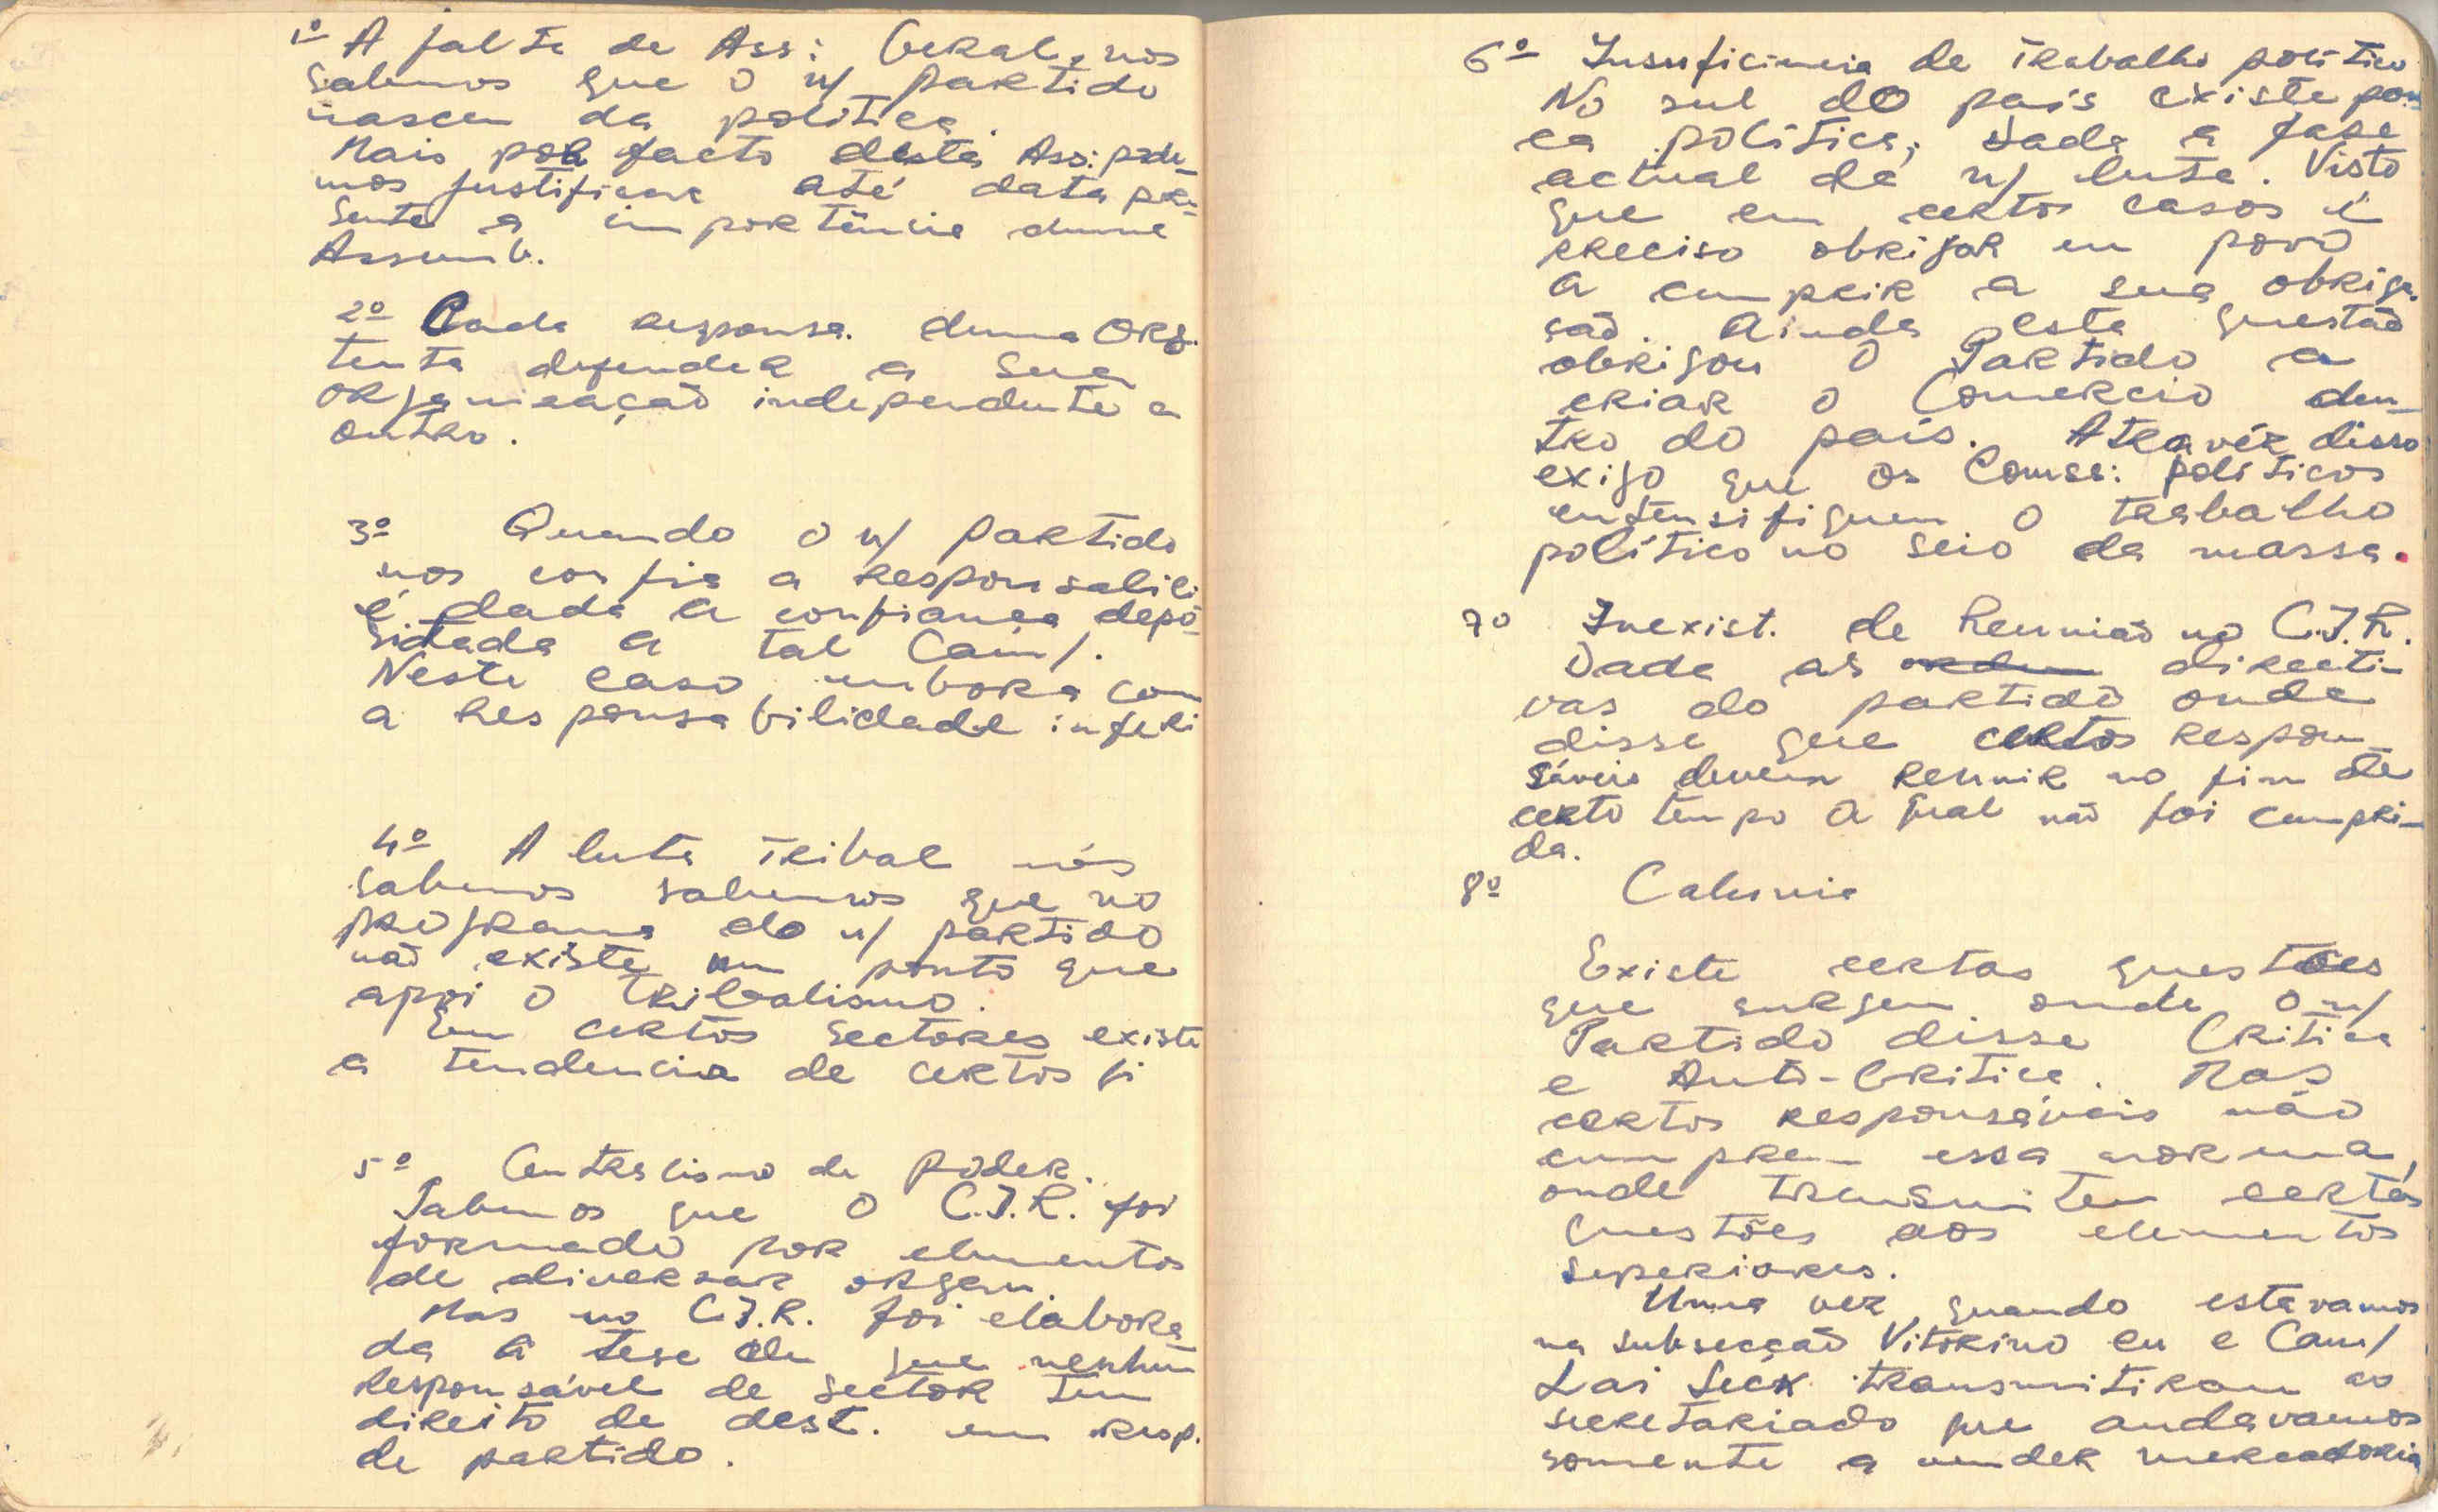 1º A falta de Ass: Geral, nós
sabemos que o n/ partido
nasceu da politica.
Mais por facto desta Ass: pode-
mos justificar até data pre-
sente a importância duma
Assemb.
2º Cada responsa. duma Org.
tenta defender a sua
organização independente a
outro.
3º Quando o n/ partido
nos confia a responsabili
é dada a confiança depo-
sidada a tal Cam/.
Neste caso embora com
a Responsabilidade inferi
4º A luta Tribal nós
sabemos sabemos que no
programa do n/ partido
não existe um ponto que
apoi o tribalismo.
Em certos sectores existe
a tendencia de certos
5º Centralismo de poder.
Sabemos que o C.I.R. foi
formado por elementos
de diversar orgem
Mas no C.I.R. foi elabora-
da a tese de que nenhum
Responsável de sector tem
direito de dest. um resp.
de partido.
6º Insuficiencia de Trabalho político
No sul do país existe pou
ca política, dada a fase
actual da n/ luta. Visto
que em certos casos é
preciso obrigar eu povo
a cumprir a sua obriga-
são. Ainda esta questão
obrigou o Partido a
criar o Comercio den-
tro do país. Atravéz disso
exijo que os Comss: políticos
entensifiquem o trabalho
político no seio da massa.
7º Inexist. de Reunião no C.I.R.
Dada as directi-
vas do partido onde
disse que certos respon-
sáveis devem reunir no fim de
certo tempo a qual não foi cumpri-
da.
8º Calunia
Existe certas questões
que surgem onde o n/
Partido disse Critica
e Auto-Critica. Mas
certos responsáveis não
cumprem essa norma,
onde transmitem certas
questões aos elementos
superiores.
Uma vez quando estavamos
na subsecção Vitorino eu e Cam/
Lai Seck transmitiram ao
secretariado que andavamos
somente a vender mercadoria